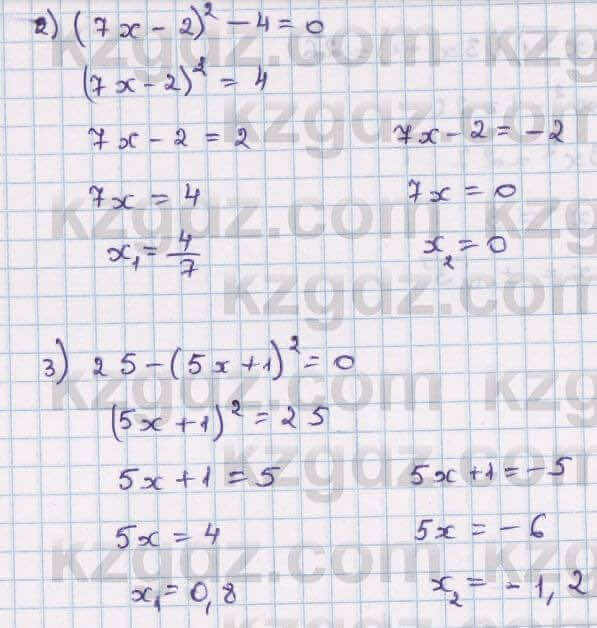 2) (7x - 2)² - 4 = 0
(7x - 2)² = 4
7x - 2 = 2    7x - 2 = -2
7x = 4    7x = 0
x₁ = 4/7    x₂ = 0
3) 25 - (5x + 1)² = 0
(5x + 1)² = 25
5x + 1 = 5    5x + 1 = -5
5x = 4    5x = -6
x₁ = 0,8    x₂ = -1,2
kzgdz.com